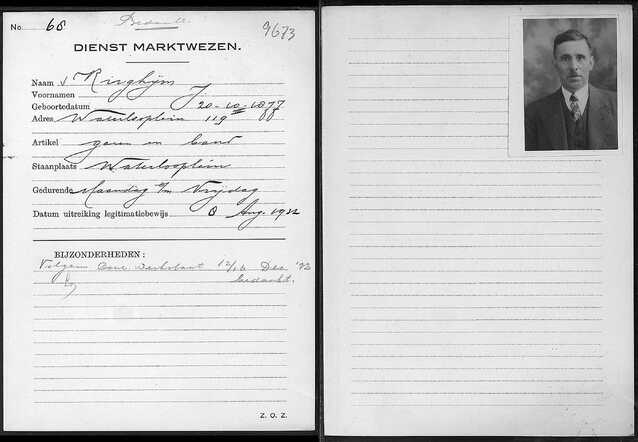 No. 68
9673
DIENST MARKTWEZEN.
Naam
Voornamen J.
Geboortedatum 20-10-1877
Adres Waterlooplein 119
Artikel garen en band
Staanplaats Waterlooplein
Gedurende Maandag t/m Vrijdag
Datum uitreiking legitimatiebewijs 8 Aug. 1922
BIJZONDERHEDEN:
Volgens 12/16 Dec '42
Z. O. Z.